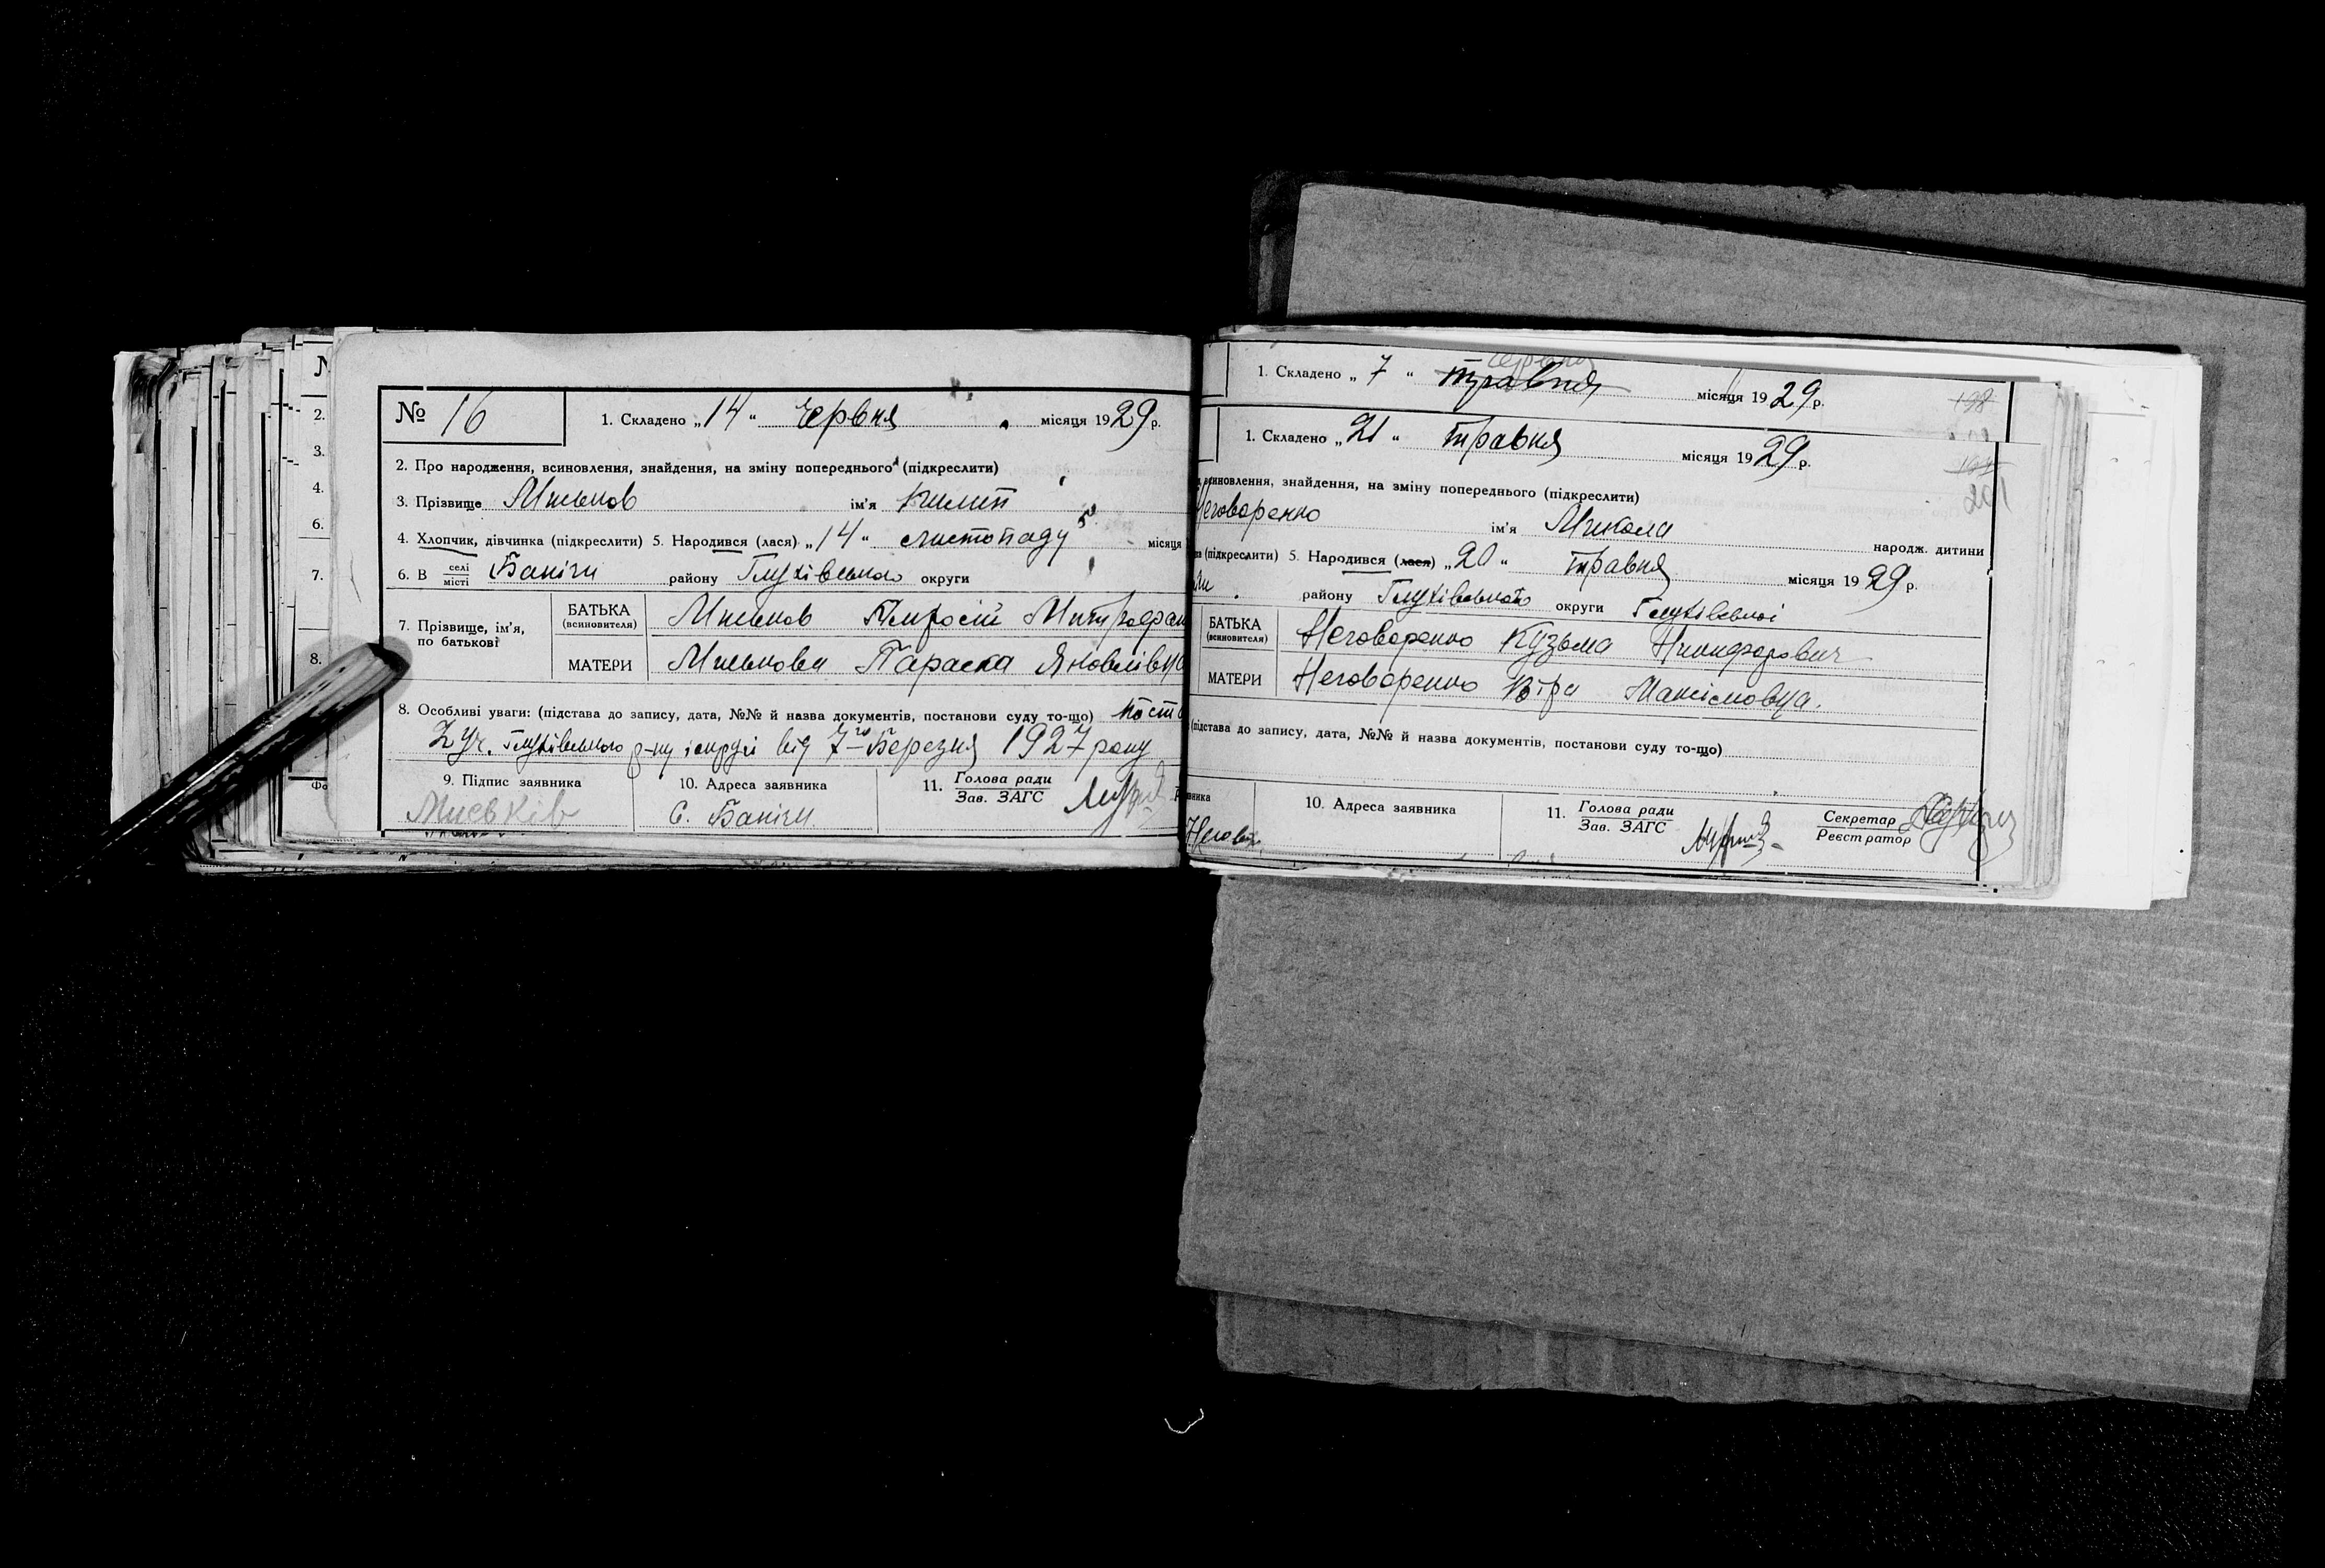 № 16 1. Складено „14“ червня місяця 1929 р.
2. Про народження, всиновлення, знайдення, на зміну попереднього (підкреслити)
3. Прізвище Миськов ім'я Килип
4. Хлопчик, дівчинка (підкреслити) 5. Народився (лася) „14“ листопаду місяця
6. В селі місті Банічи району Глухівського округи
7. Прізвище, ім'я, по батькові
БАТЬКА (всиновителя) Миськов
МАТЕРИ Миськова Параска Яковлівна
8. Особливі уваги: (підстава до запису, дата, №№ й назва документів, постанови суду то-що) Пост
2 уч. Глухівського р-ну від 7-го Березня 1927 року
9. Підпис заявника 10. Адреса заявника 11. Голова ради Зав. ЗАГС
Миськів С. Банічи
№
2.
3.
4.
6.
7.
8.
Фо
1. Складено „7“ травня червня місяця 1929 р.
198
1. Складено „21“ травня місяця 1929 р.
201
всиновлення, знайдення, на зміну попереднього (підкреслити)
Неговоренко ім'я Микола народж. дитини
(підкреслити) 5. Народився (лася) „20“ травня місяця 1929 р.
району Глухівського округи Глухівської
БАТЬКА (всиновителя) Неговоренко Кузьма Никифорович
МАТЕРИ Неговоренко Віра Максімовна.
(підстава до запису, дата, №№ й назва документів, постанови суду то-що)
вника 10. Адреса заявника 11. Голова ради Зав. ЗАГС Секретар Реєстратор
Негов